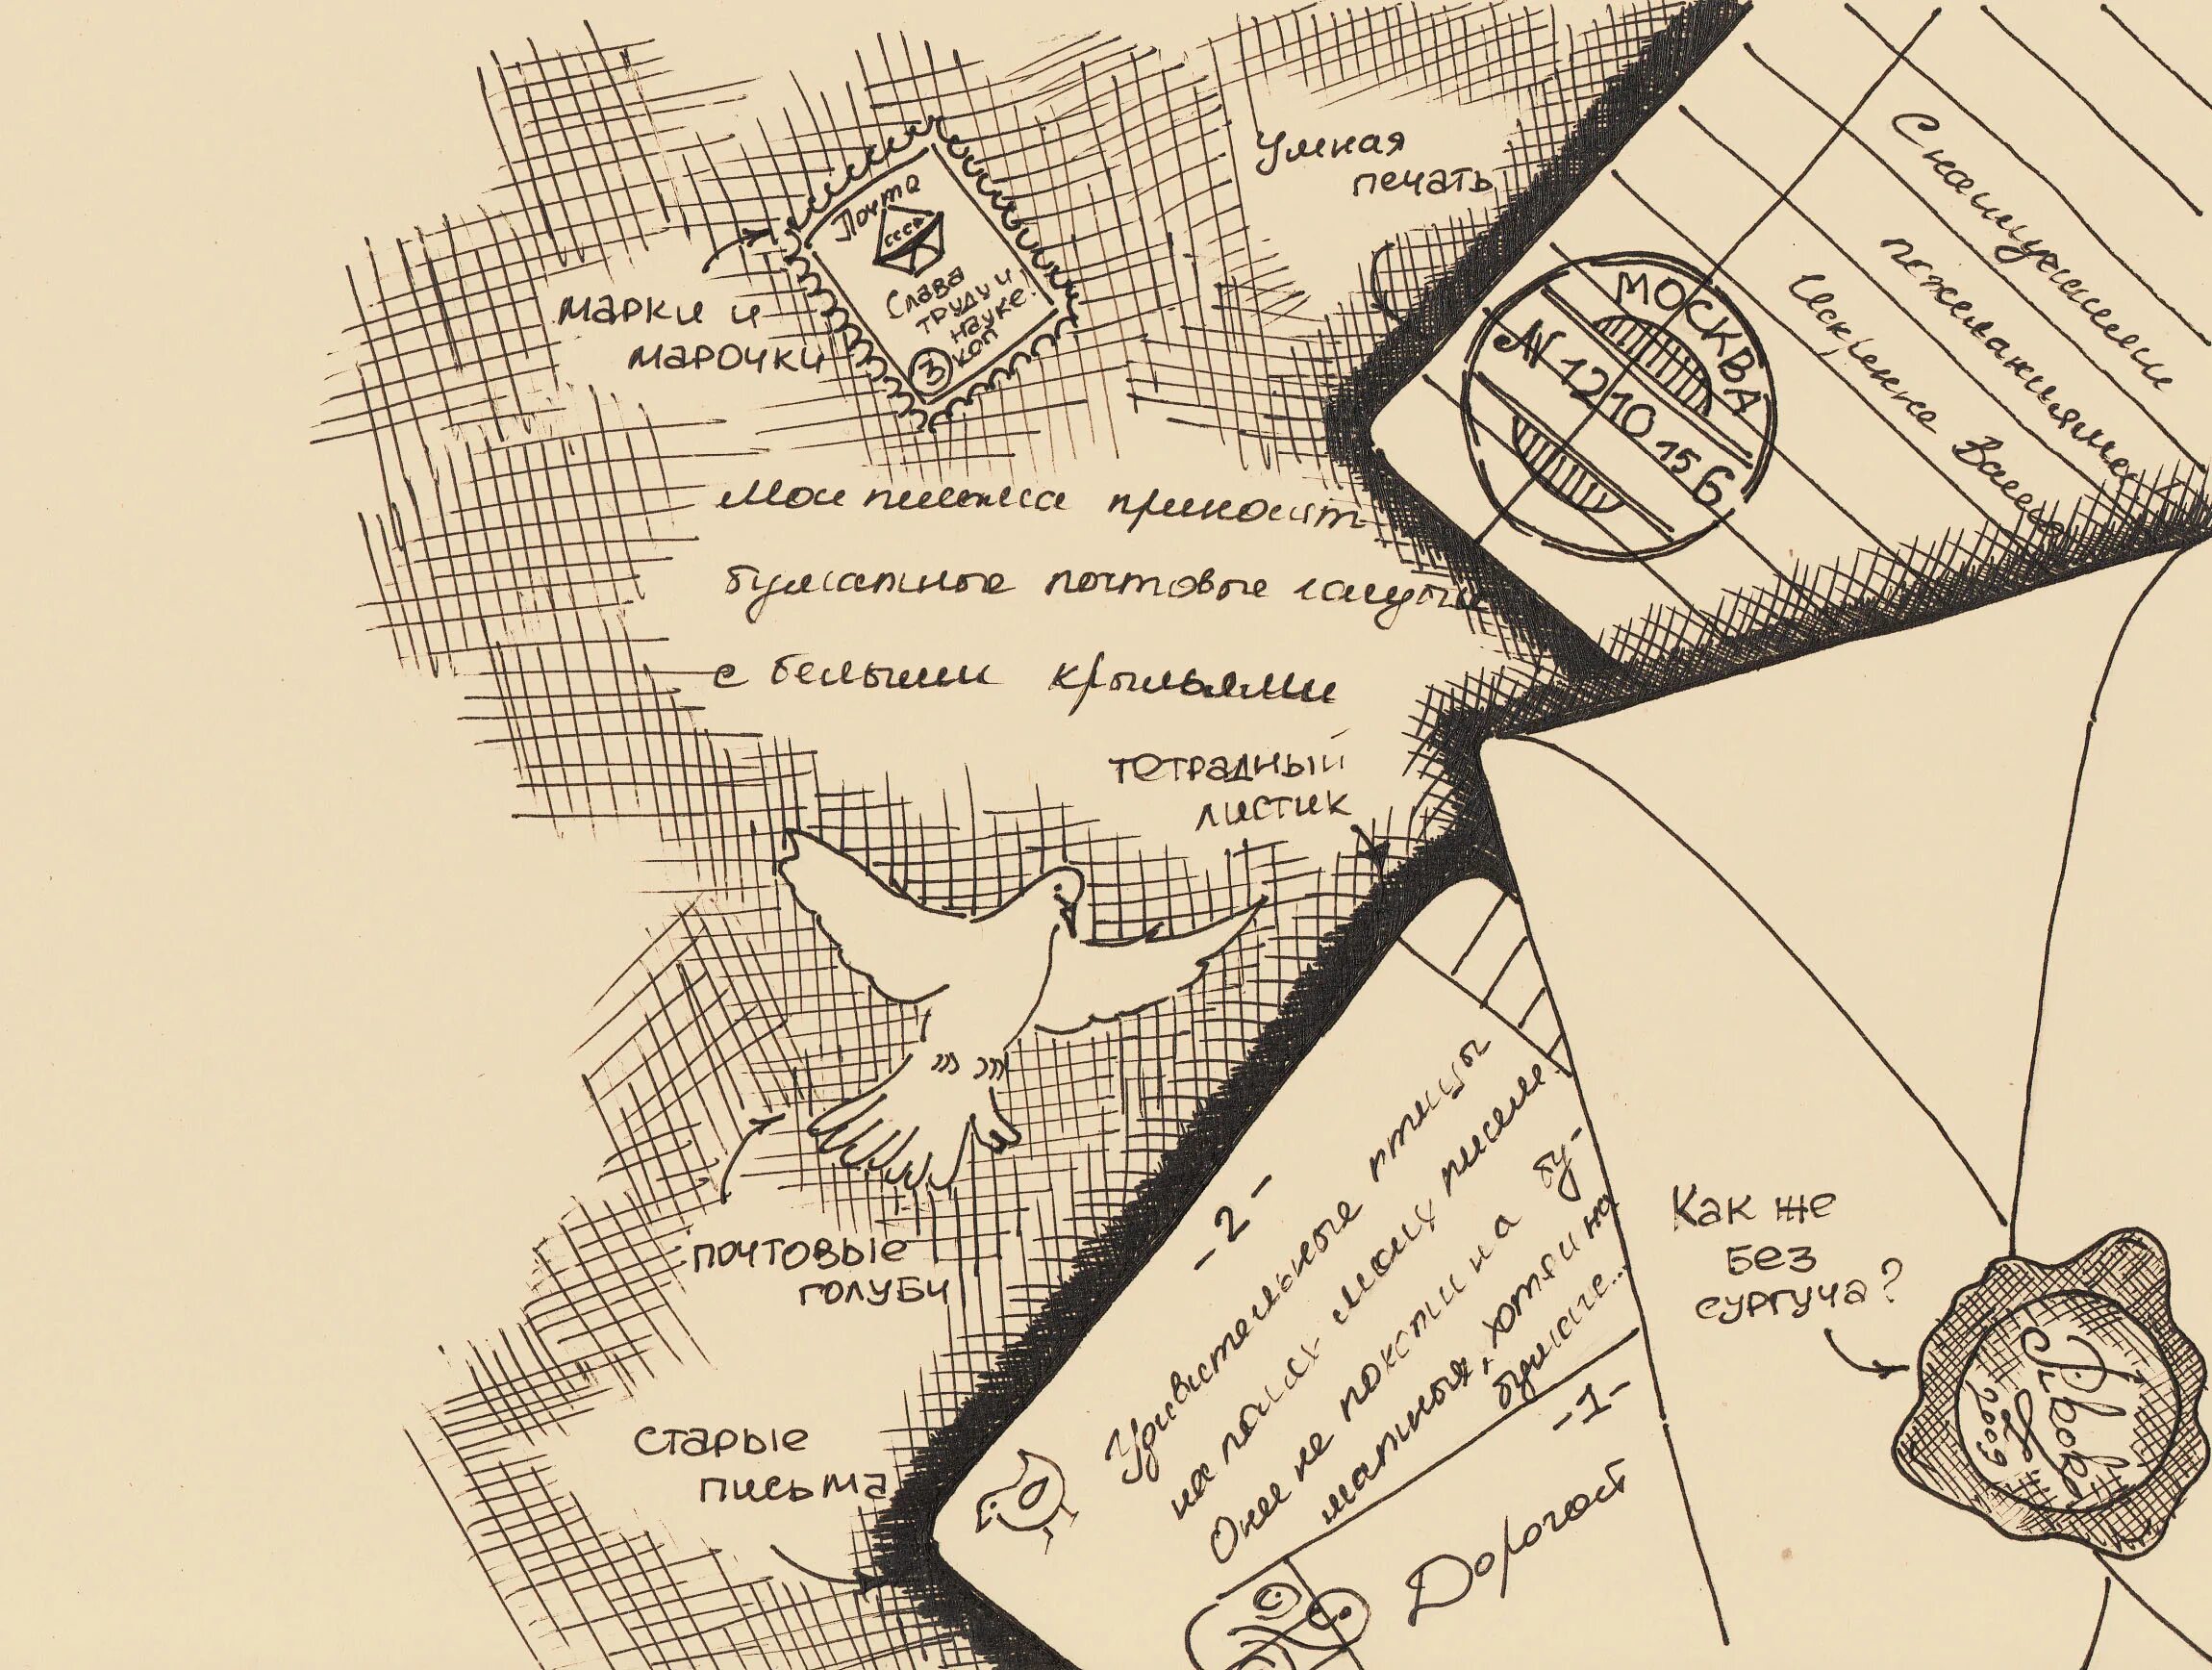 Умная
печать
Почта
СССР
Слава
труду и
науке!
3 коп
марки и
марочки
МОСКВА
С наилучшими
пожеланиями
Искренне Ваш
Мои письма приносят
бумажные почтовые голуби
с белыми крыльями
тетрадный
листик
почтовые
голуби
старые
письма
-2-
Удивительные птицы
на полях моих писем.
Они не похожи на бу-
мажных, хотя и на
бумаге...
-1-
Дорогой
Как же
без
сургуча?
2009